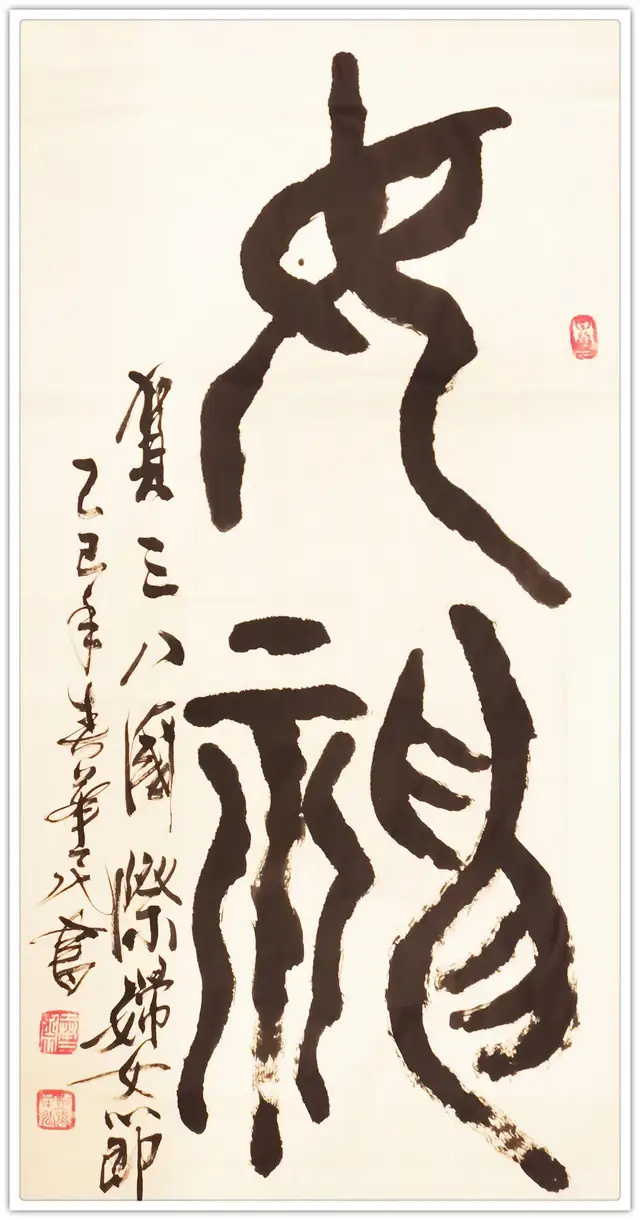 女神
賀三八國際婦女節
乙巳年春華書